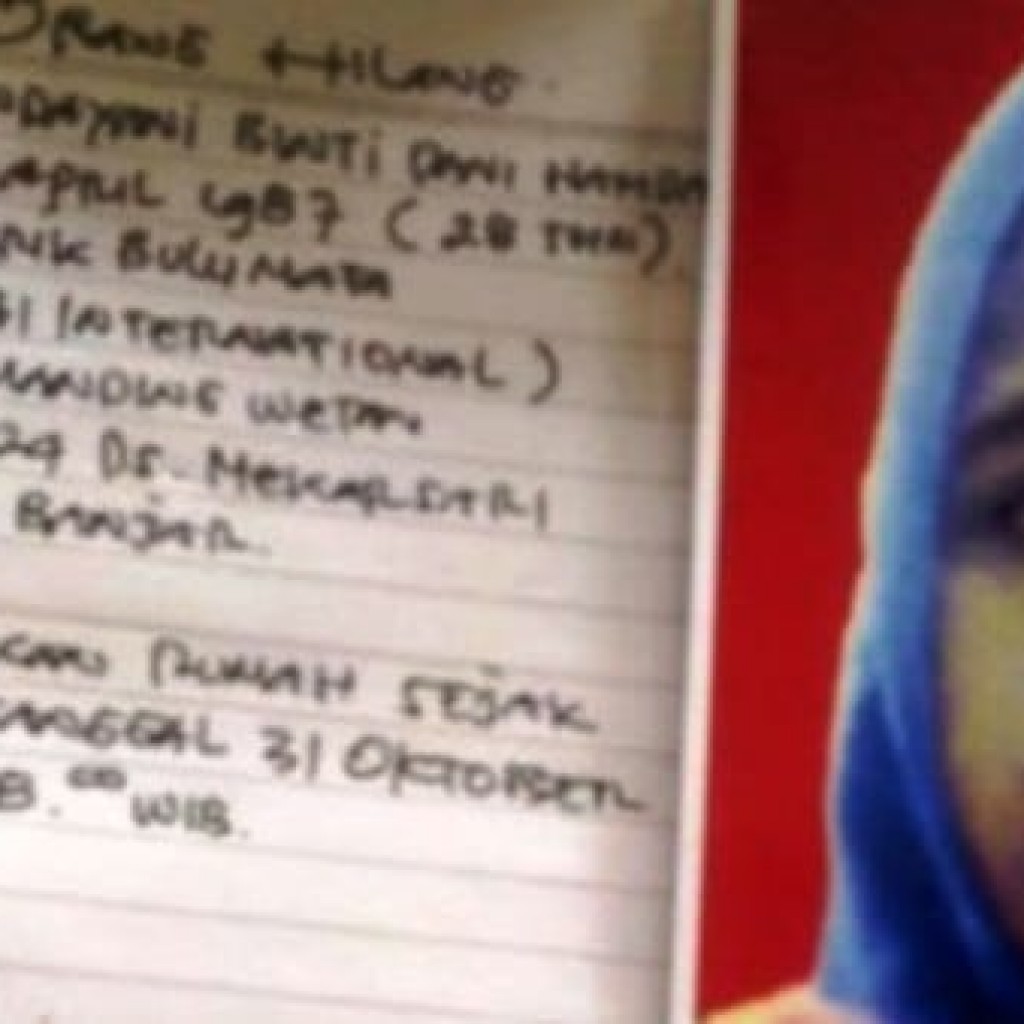 ORANG HILANG.
DAYANI BINTI DANI HAMDA
APRIL 1987 (28 THN)
NK BULU MATA
INTERNATIONAL)
WETAN
24 DS. MEKARSARI
BANJAR.
RUMAH SEJAK
TANGGAL 31 OKTOBER
8.00 WIB.